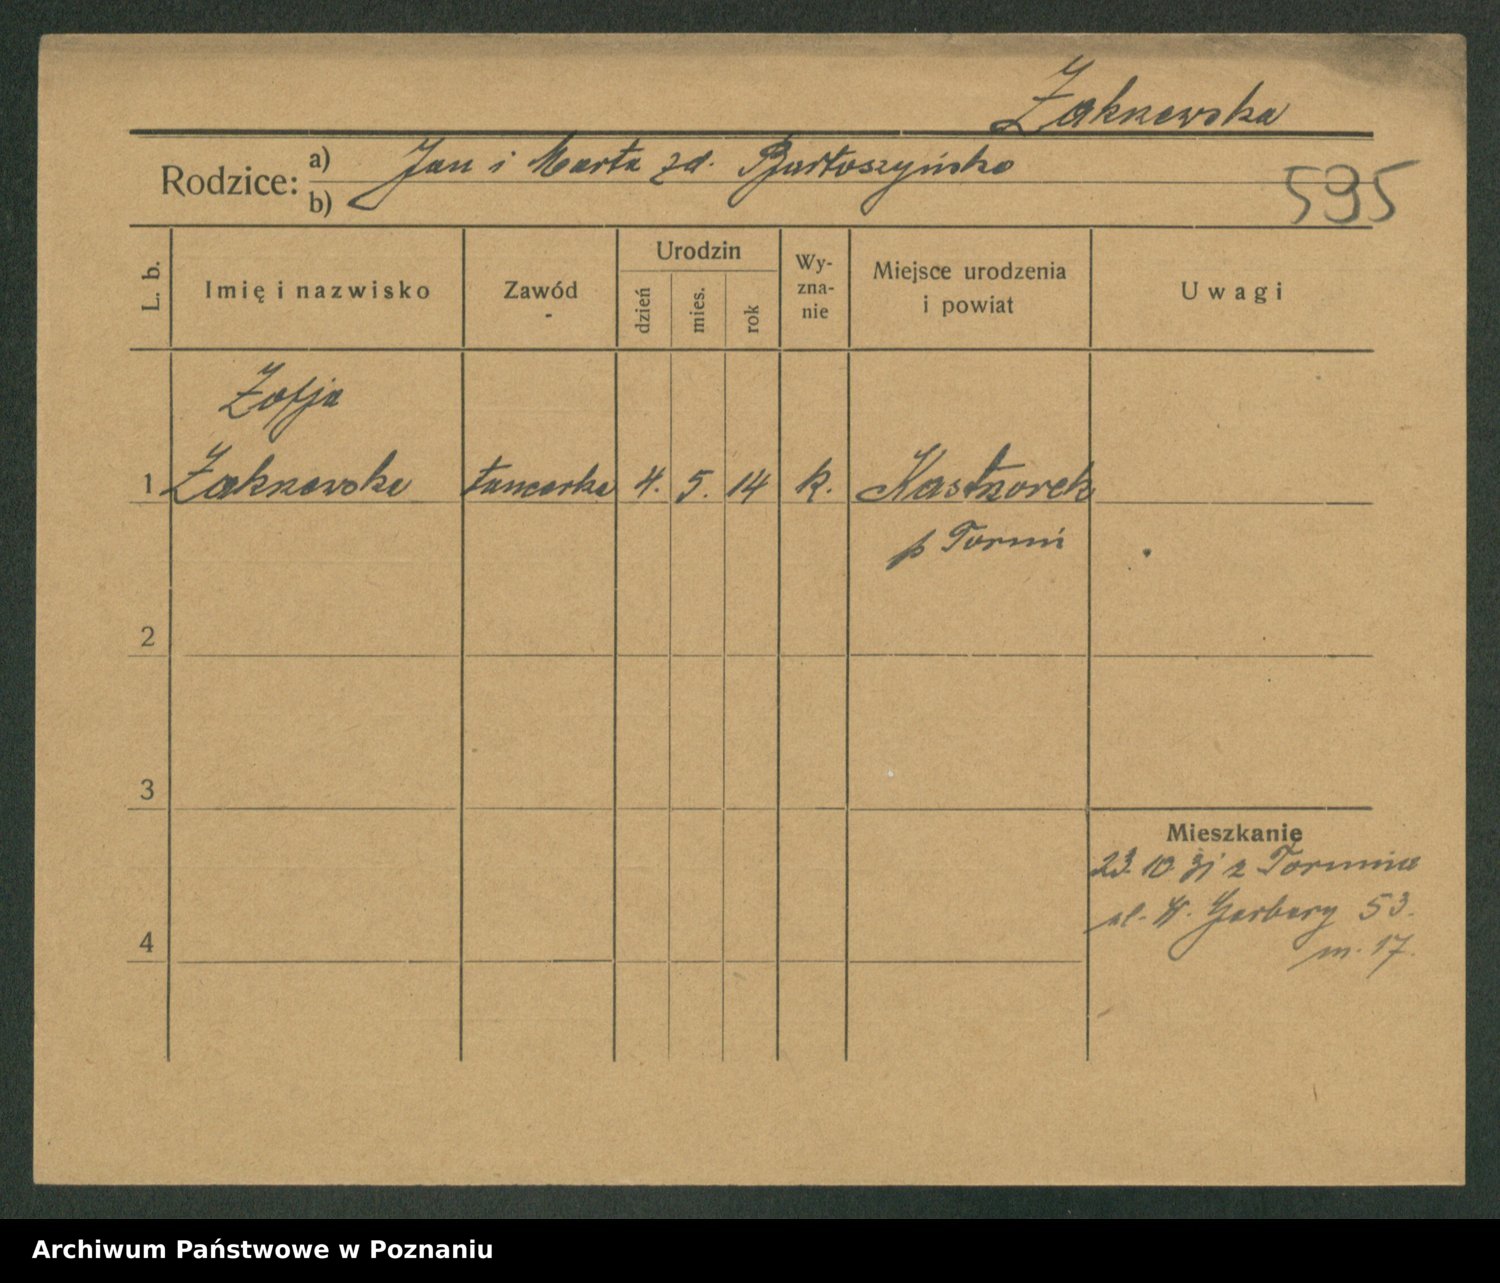 Zakrzewska
Rodzice: a) Jan i Marta zd. Bartoszyńska
b)
595
L. b.
Imię i nazwisko
Zawód
Urodzin
dzień
mies.
rok
Wy-
zna-
nie
Miejsce urodzenia
i powiat
Uwagi
Zofja
1 Zakrzewska tancerka 4. 5. 14 k. Kaszczorek
p Toruń
2
3
4
Mieszkanie
23. 10 31 z Torunia
ul. W. Garbary 53.
m. 17.
Archiwum Państwowe w Poznaniu